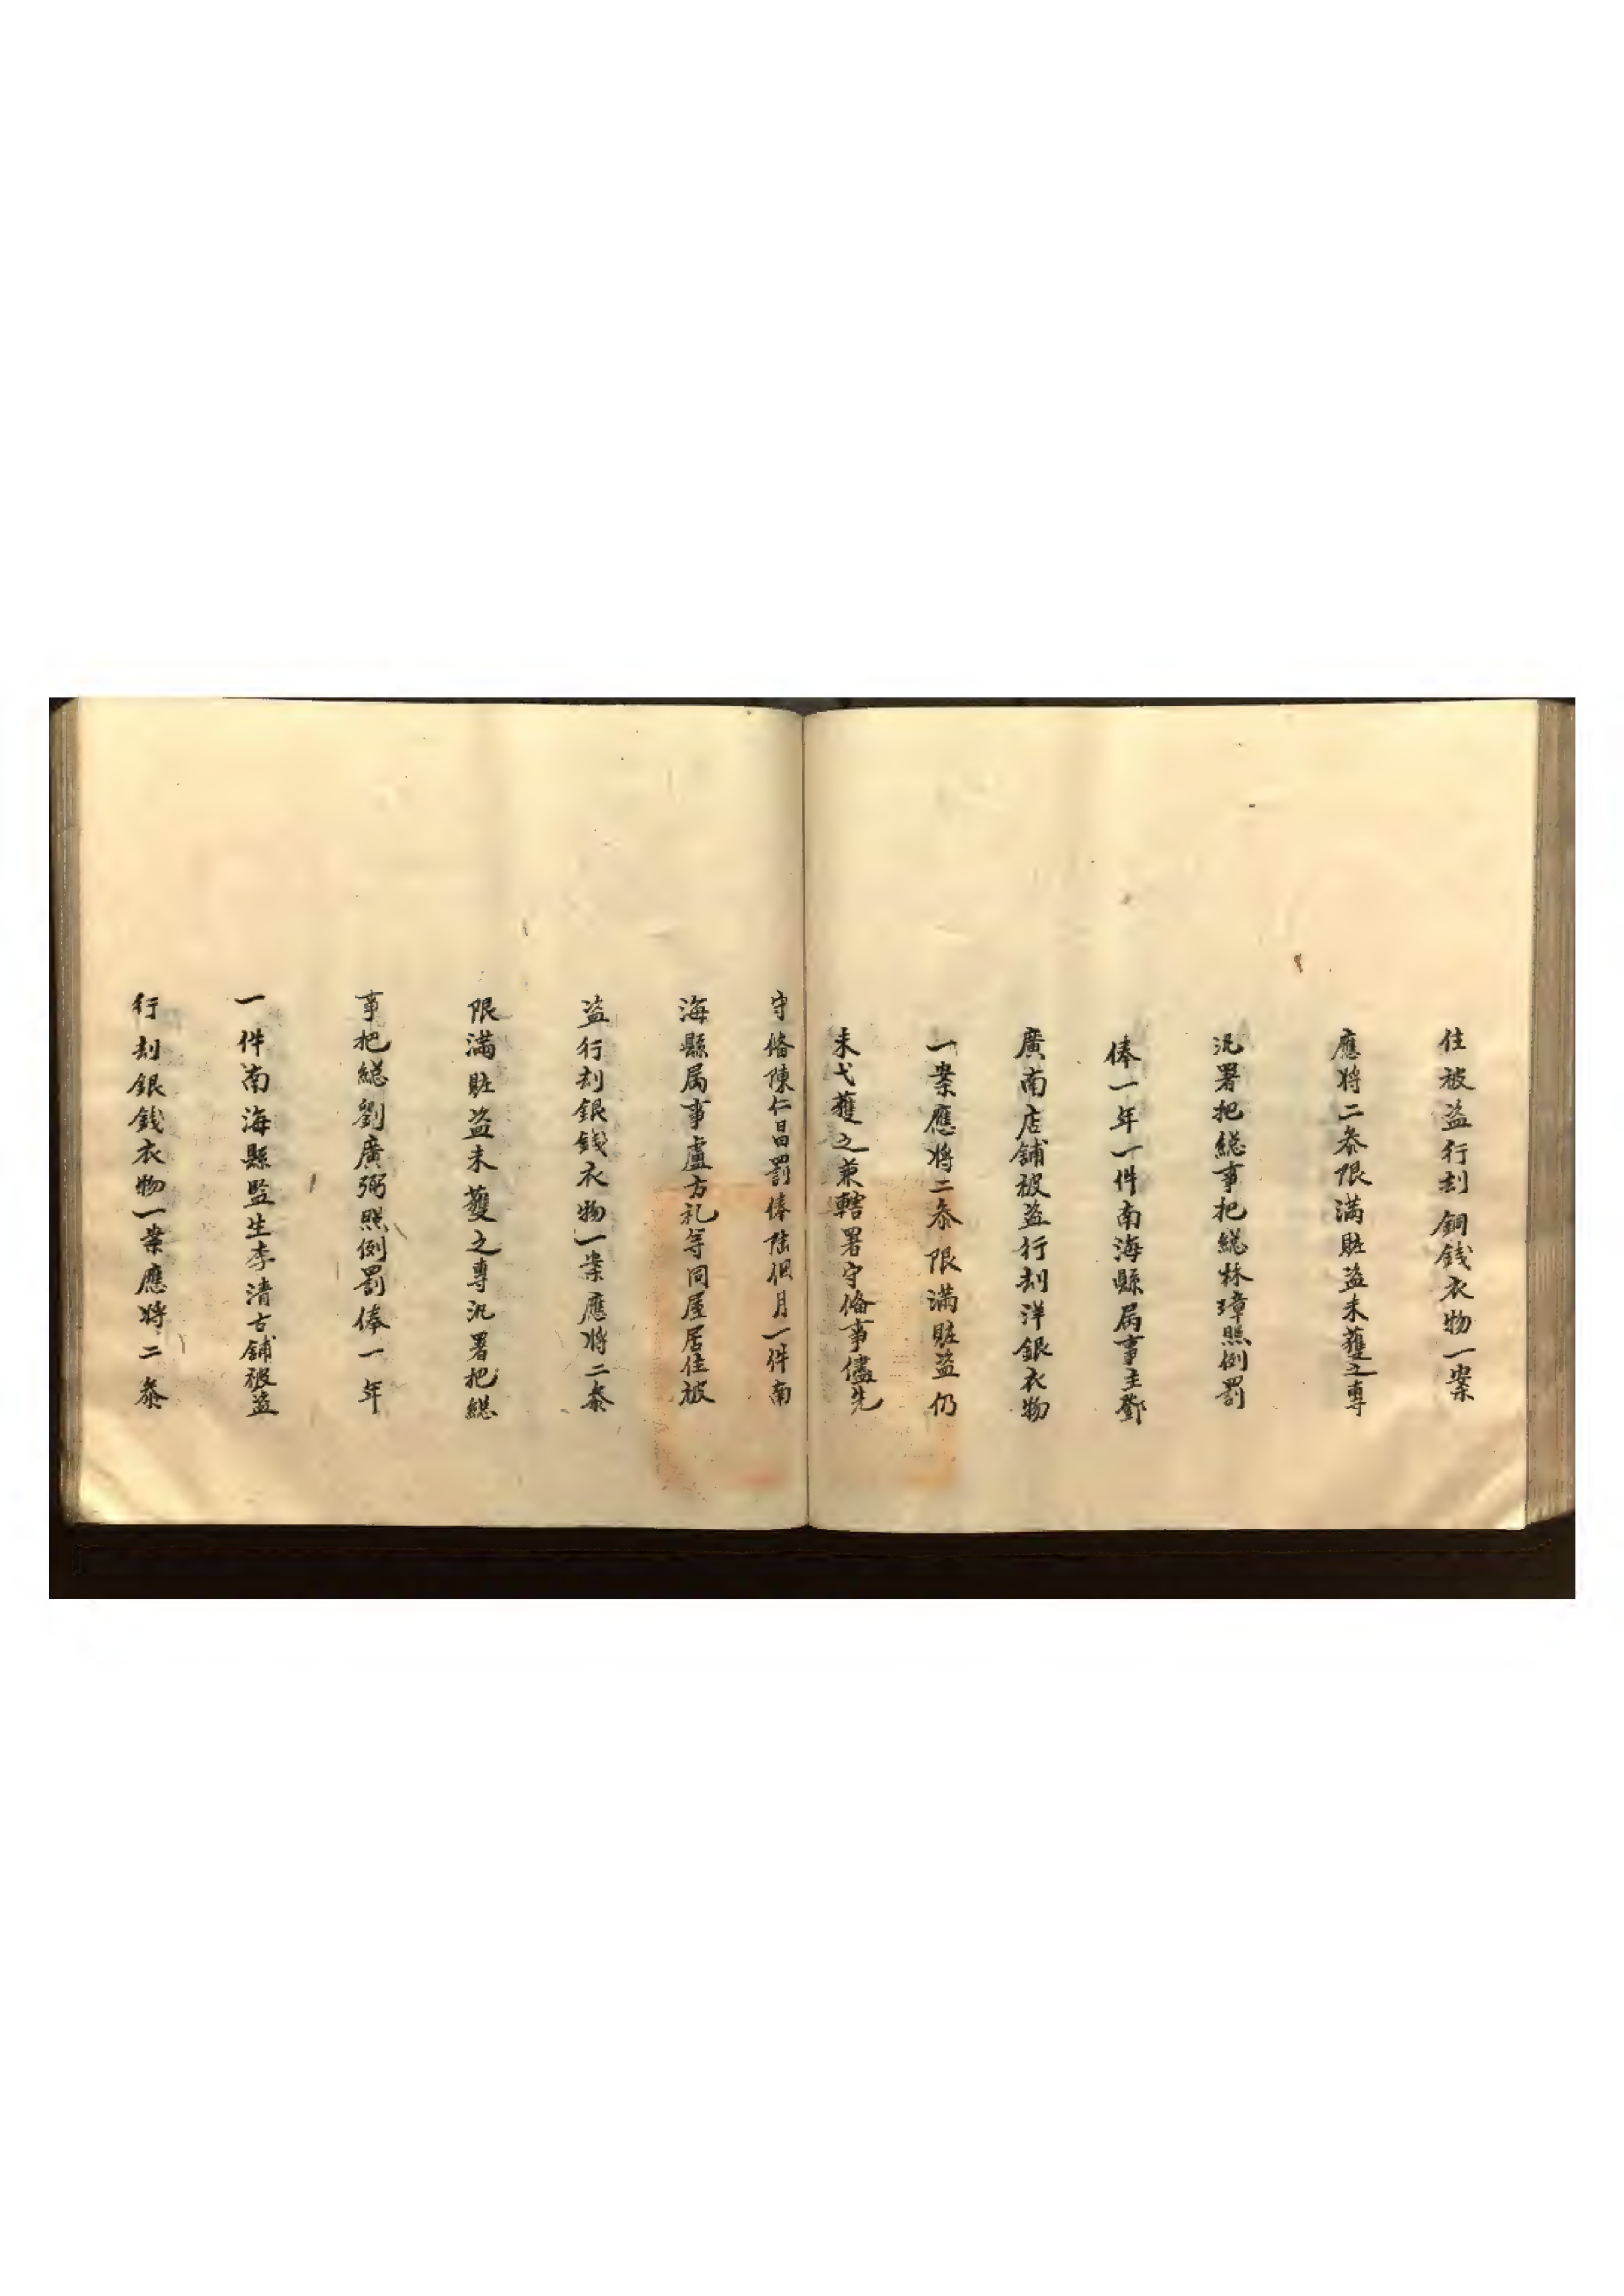 住被盜行刦銅錢衣物一案
應将二叅限滿賍盜未獲之專
汛署把総事把総林璋照例罰
俸一年一件南海縣属事主鄧
廣南店舖被盜行刦洋銀衣物
一案應將二叅限滿賍盜仍
未弋獲之兼轄署守俻事儘先
守俻陳仁昌罰俸陸個月一件南
海縣属事盧方礼等同屋居住被
盜行刦銀錢衣物一案應將二叅
限滿賍盜未獲之專汛署把総
事把総劉廣弼照例罰俸一年
一件南海縣監生李清古舖被盜
行刦銀錢衣物一案應将二叅